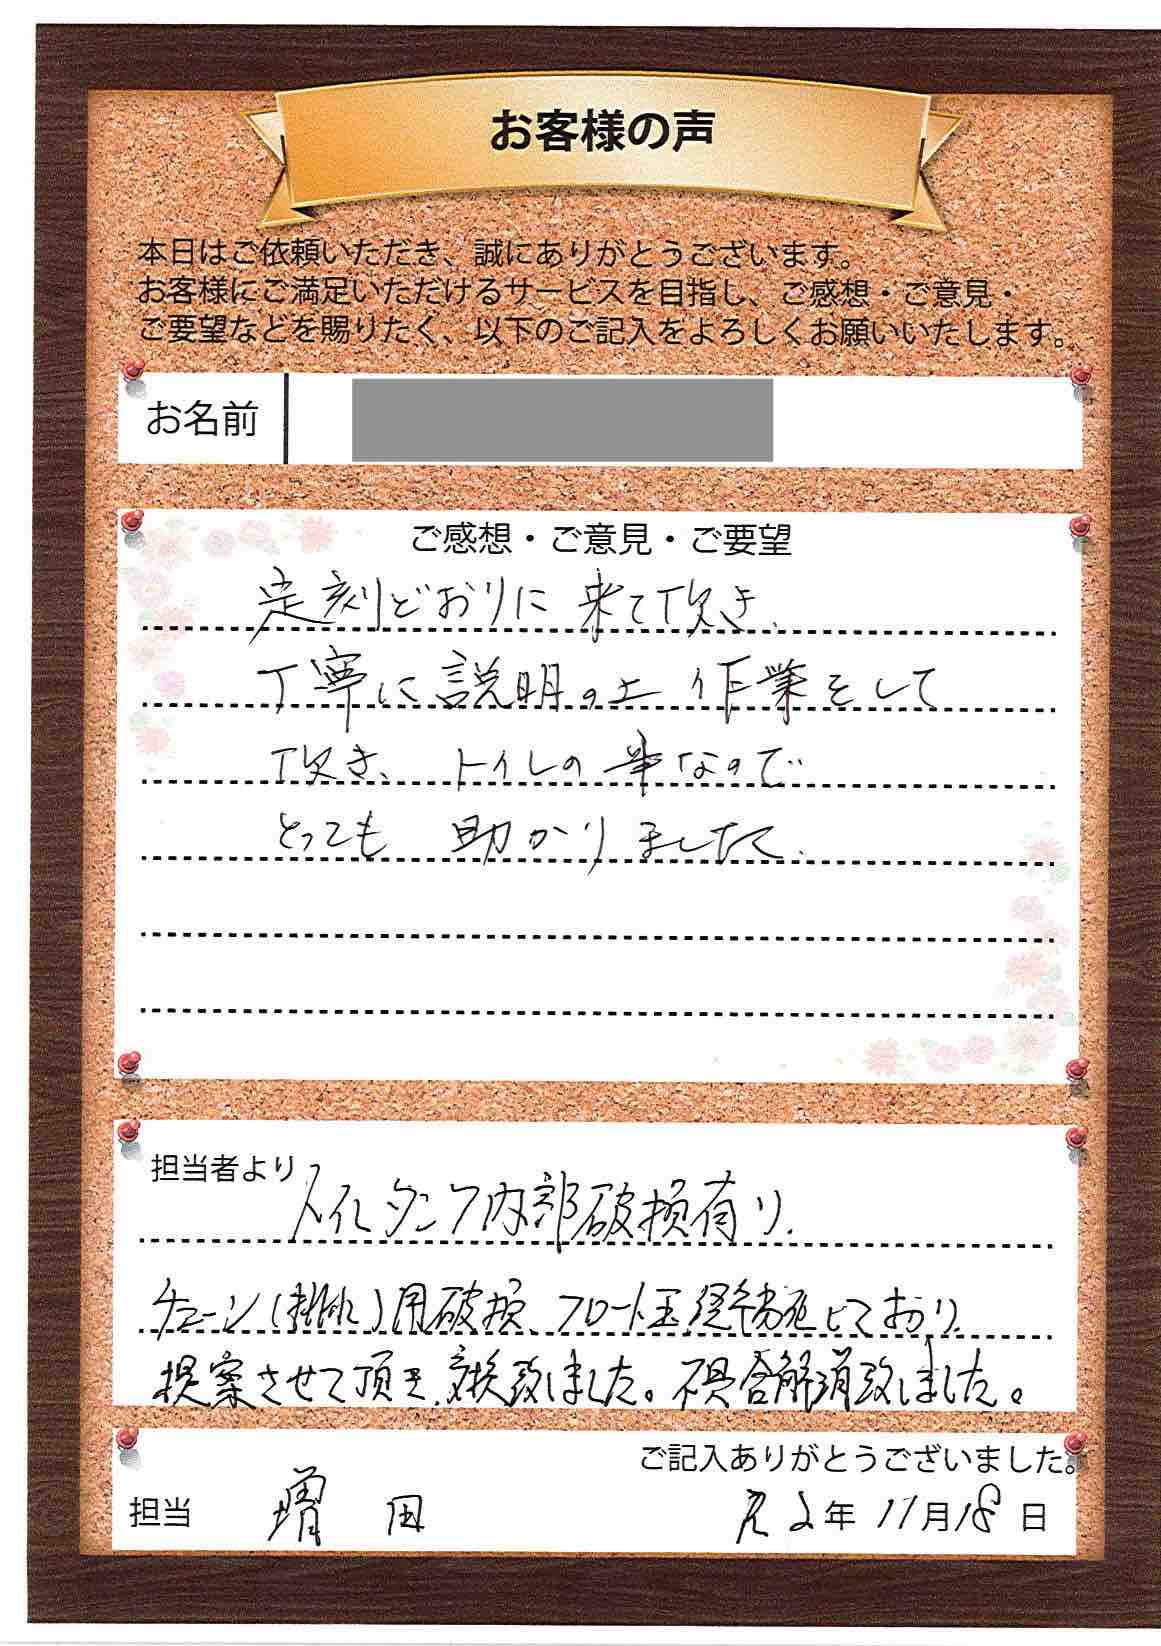 お客様の声
本日はご依頼いただき、誠にありがとうございます。
お客様にご満足いただけるサービスを目指し、ご感想・ご意見・
ご要望などを賜りたく、以下のご記入をよろしくお願いいたします。
お名前
ご感想・ご意見・ご要望
定刻どおりに来て頂き、
丁寧に説明の上作業をして
頂き、トイレの事なので
とっても助かりました。
担当者より
トイレタンク内部破損有り、
チェーン(排水)用破損、フロート玉経年劣化しており、
提案させて頂き、交換致しました。不具合解消致しました。
ご記入ありがとうございました。
担当 増田
年11月18日